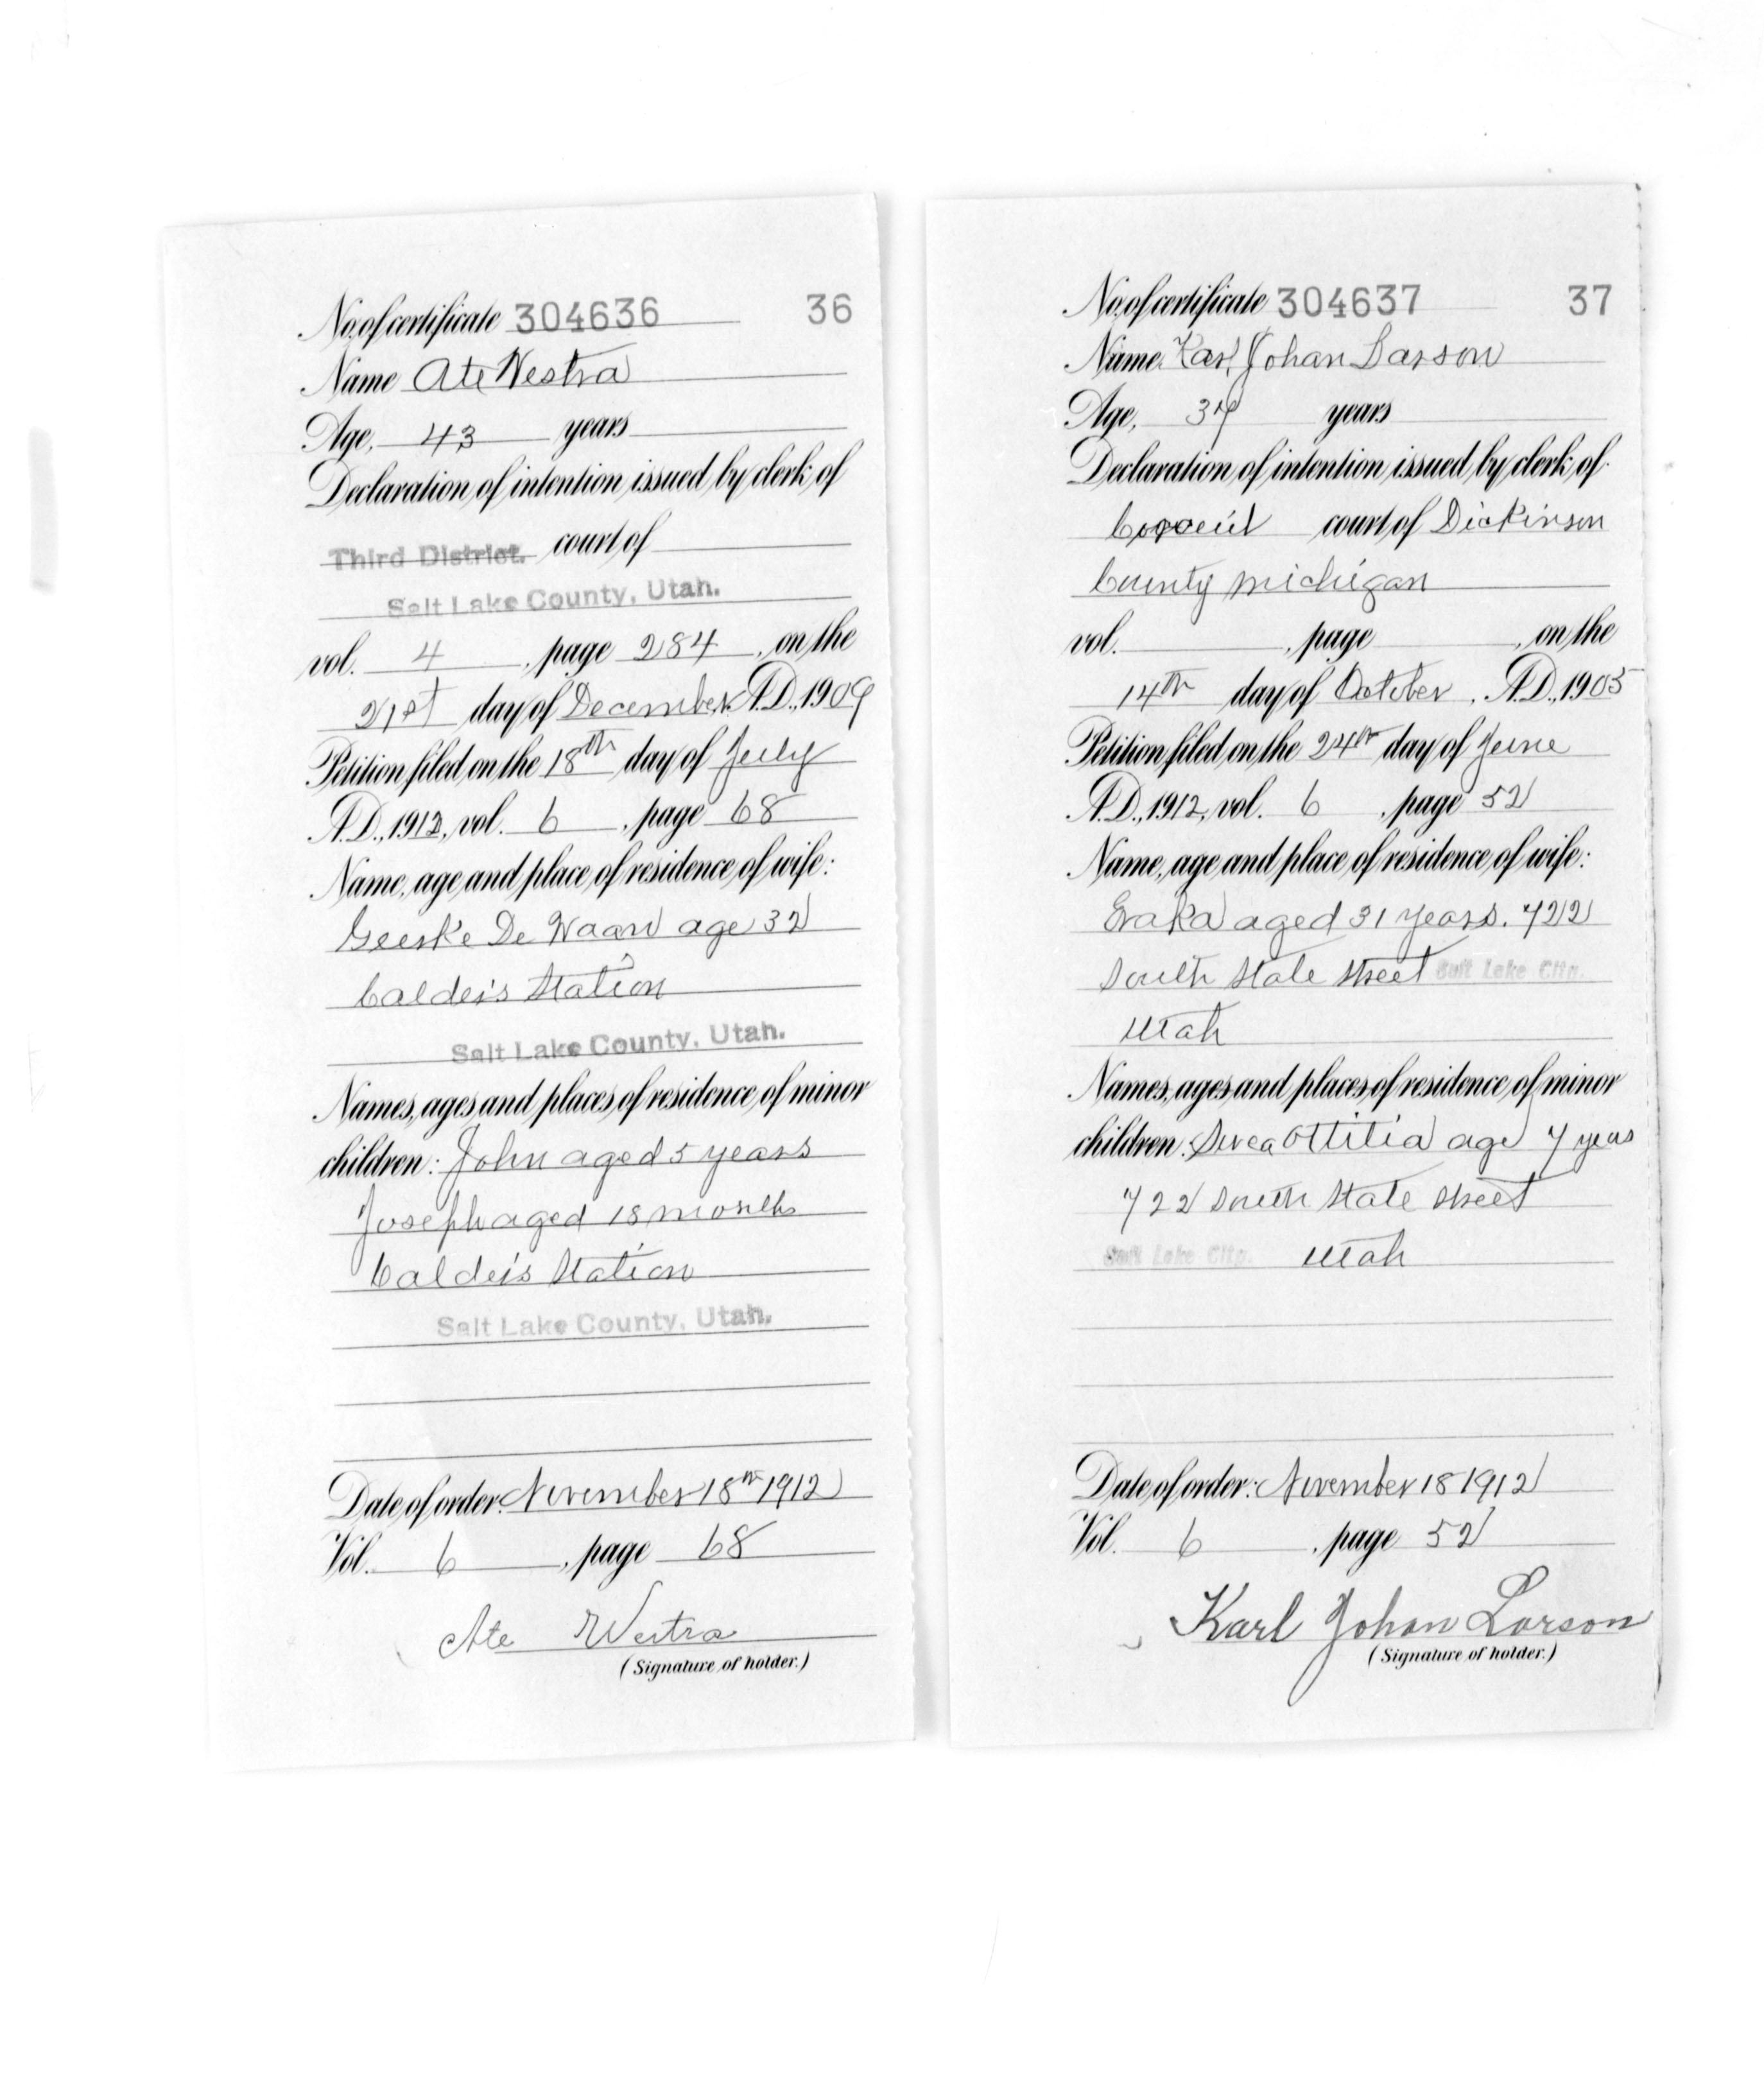 No. of certificate 304636 36
Name Ate Westra
Age, 43 years
Declaration of intention issued by clerk of
Third District. court of
Salt Lake County, Utah.
vol. 4, page 284, on the
21st day of December A.D., 1909
Petition filed on the 18th day of July
A.D., 1912, vol. 6, page 68
Name, age and place of residence of wife:
Geeske De Waan age 32
Calder's Station
Salt Lake County, Utah.
Names, ages and places of residence of minor
children: John aged 5 years
Joseph aged 18 months
Calder's Station
Salt Lake County, Utah.
Date of order: November 18th 1912
Vol. 6, page 68
Ate Westra
(Signature of holder.)
No. of certificate 304637 37
Name Karl Johan Larson
Age, 37 years
Declaration of intention issued by clerk of
court of Dickinson
County Michigan
vol. , page , on the
14th day of October, A.D., 1905
Petition filed on the 24th day of June
A.D., 1912, vol. 6, page 52
Name, age and place of residence of wife:
aged 31 years. 722
South State Street Salt Lake City.
Utah
Names, ages and places of residence of minor
children: Svea Ottitia age 7 years
722 South State Street
Salt Lake City. Utah
Date of order: November 18 1912
Vol. 6, page 52
Karl Johan Larson
(Signature of holder.)